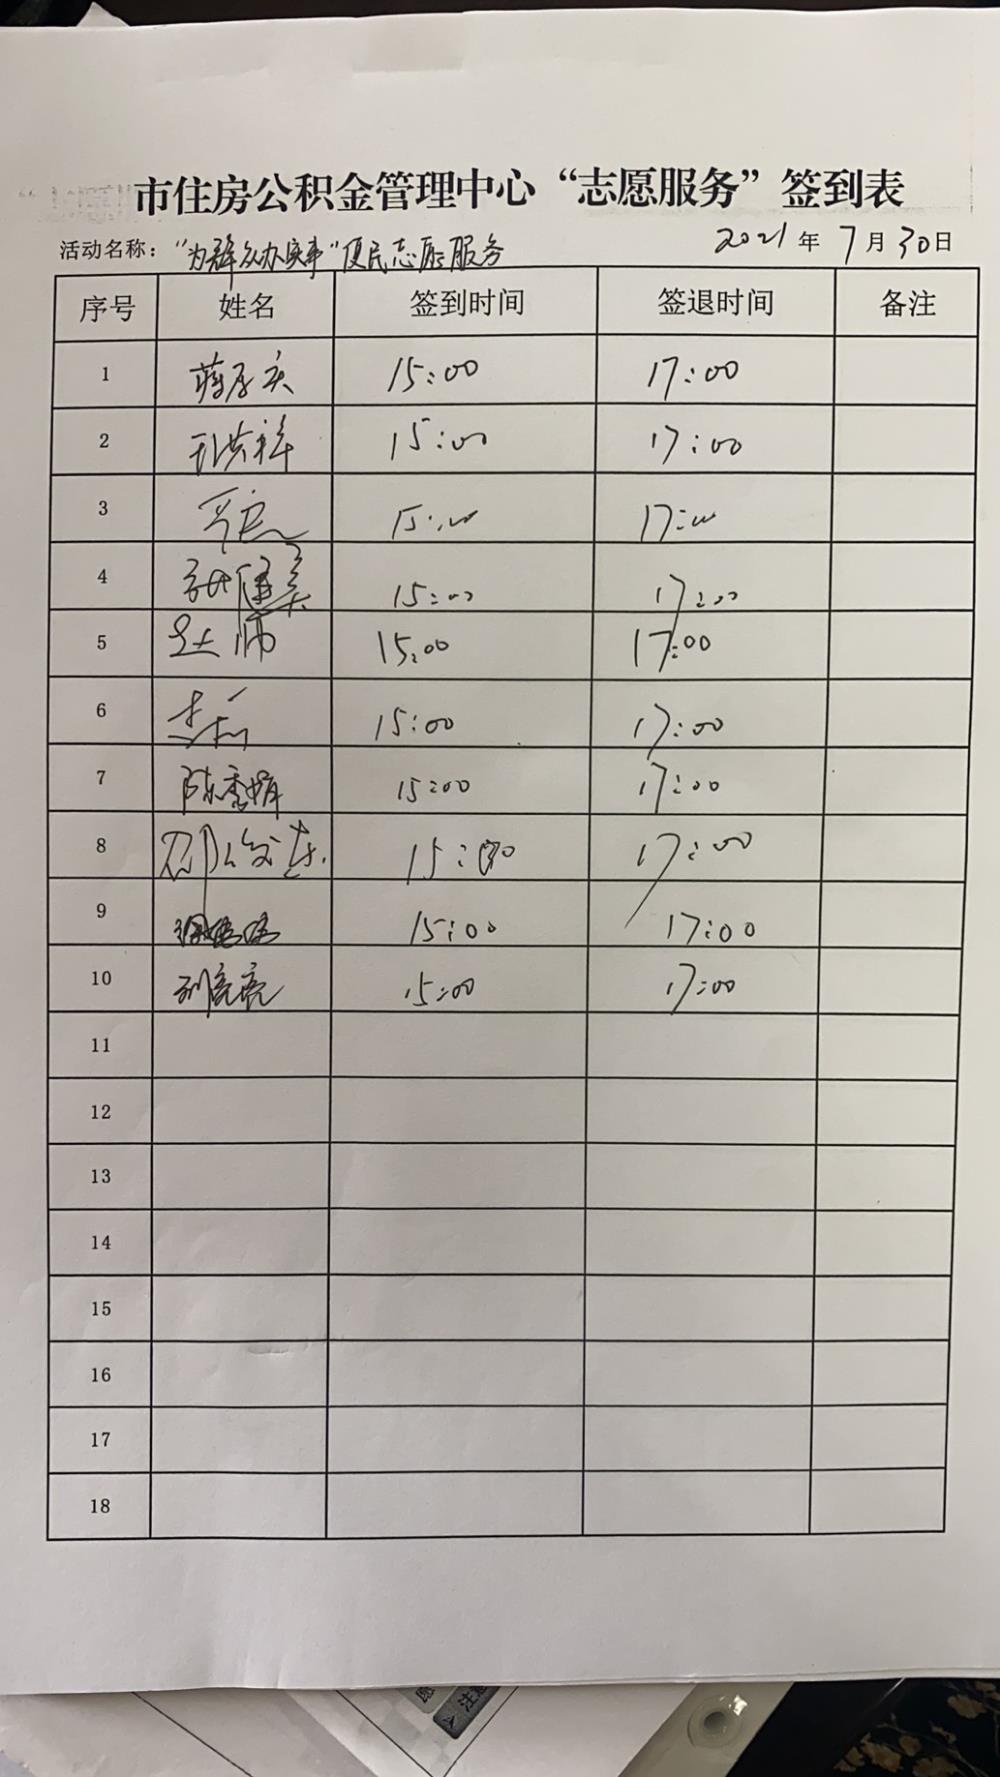 市住房公积金管理中心“志愿服务”签到表
活动名称：“为群众办实事”便民志愿服务 2021年7月30日
序号 姓名 签到时间 签退时间 备注
1 15:00 17:00
2 孔洪祥 15:00 17:00
3 15:00 17:00
4 15:00 17:00
5 15:00 17:00
6 15:00 17:00
7 陈秀娟 15:00 17:00
8 15:00 17:00
9 15:00 17:00
10 刘亮亮 15:00 17:00
11
12
13
14
15
16
17
18
注意